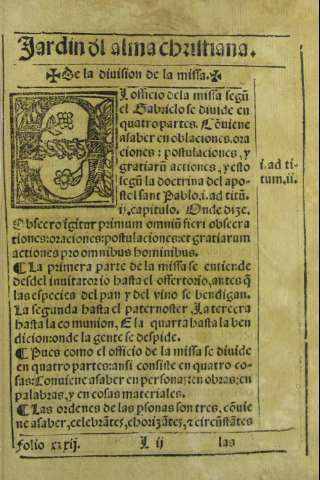 Jardin d̄l alma christiana.
✠De la diuision de la missa.✠
EL officio dela missa segũ
el Gabrielo se diuide en
quatro partes. Cõuiene
asaber en oblaciones.ora
ciones: postulaciones, y
gratiarũ actiones, y esto
segũ la doctrina del apo-
stel sant Pablo.i.ad titũ.
ij.capitulo. Onde dize.
i.ad ti-
tum.ii.
Obsecro igitur primum omniũ fieri obsecra
tiones:oraciones:postulaciones:et gratiarum
actiones pro omnibus hominibus.
¶ La primera parte de la missa se entiende
desdel inuitatorio hasta el offertorio, antes q̃
las especies del pan y del vino se bendigan.
La segunda hasta el paternoster. La tercera
hasta la comunion, E la quarta hasta la ben
dicion:onde la gente se despide.
¶ Pues como el officio de la missa se diuide
en quatro partes:ansi consiste en quatro co-
sas:Conuiene asaber en personas:en obras:en
palabras, y en cosas materiales.
¶ Las ordenes de las p̃sonas son tres, cõuie
ne asaber, celebrãtes, chorizãtes, ⁊ circũstãtes
folio xxxij. L ij las